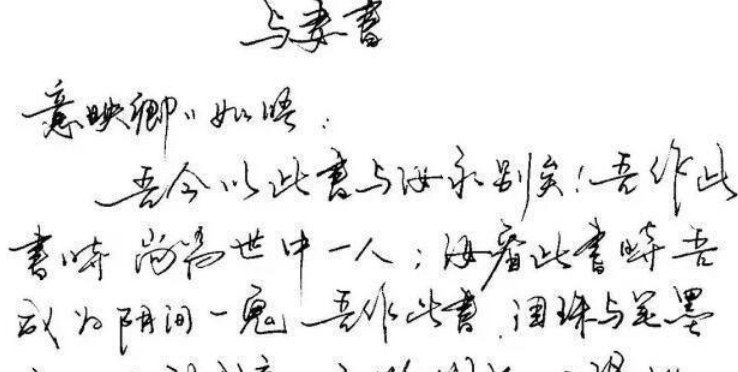 与妻书
意映卿卿如晤：
吾今以此书与汝永别矣！吾作此
书时尚为世中一人；汝看此书时吾
成为阴间一鬼 吾作此书，泪珠与笔墨